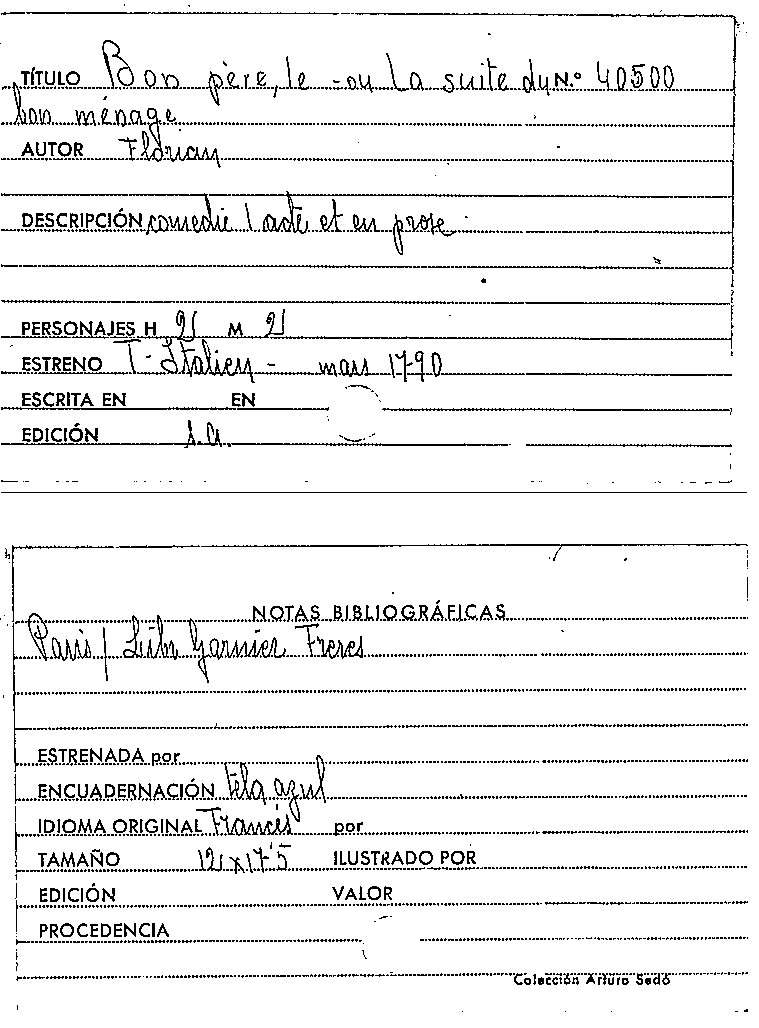 TÍTULO Bon père, le - ou la suite du N.º 40500
bon ménage
AUTOR Florian
DESCRIPCIÓN comedie 1 acte et en prose.
PERSONAJES H 2 M 2
ESTRENO T. Italien - mars 1790
ESCRITA EN EN
EDICIÓN s.a.
NOTAS BIBLIOGRÁFICAS
Paris / Libr Garnier Freres
ESTRENADA por
ENCUADERNACIÓN tela azul
IDIOMA ORIGINAL Francés por
TAMAÑO 12 x 17'5 ILUSTRADO POR
EDICIÓN VALOR
PROCEDENCIA
Colección Arturo Sedó